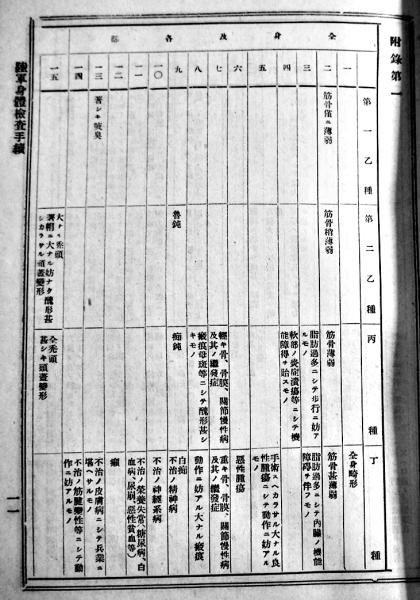 附錄第一
全身及各部
第一乙種
第二乙種
丙種
丁種
一
全身畸形
二
筋骨僅ニ薄弱
筋骨稍薄弱
筋骨薄弱
筋骨甚薄弱
三
脂肪過多ニシテ步行ニ妨アルモノ
脂肪過多ニシテ內臟ノ機能障碍ヲ伴フモノ
四
軟部ノ炎症潰瘍等ニシテ機能障碍ヲ貽スモノ
五
手術スヘカラサル大ナル良性腫瘍ニシテ動作ニ妨アルモノ
六
惡性腫瘍
七
輕キ骨、骨膜、關節慢性病及其ノ繼發症
重キ骨、骨膜、關節慢性病及其ノ繼發症
八
瘢痕母斑等ニシテ醜形甚シキモノ
動作ニ妨アル大ナル瘢痕
九
魯鈍
痴鈍
白痴
不治ノ精神病
一〇
不治ノ神經系病
一一
不治ノ榮養失常(糖尿病、白血病、尿崩、惡性貧血等)
一二
癩
一三
著シキ腋臭
不治ノ皮膚病ニシテ兵業ニ堪ヘサルモノ
一四
不治ノ筋腱變性等ニシテ動作ニ妨アルモノ
一五
大ナル禿頭
著帽ニ大ナル妨ナク醜形甚シカラサル頭蓋變形
全禿頭
甚シキ頭蓋變形
陸軍身體檢查手續
一一